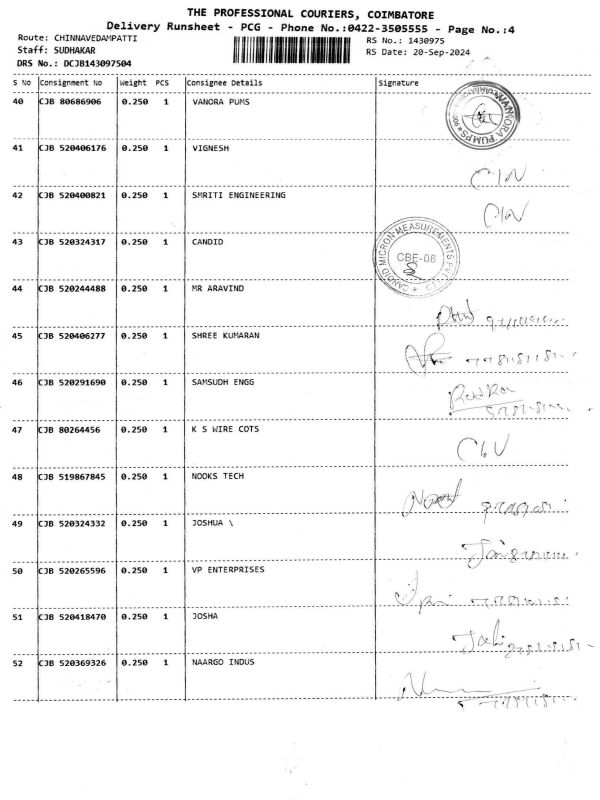 THE PROFESSIONAL COURIERS, COIMBATORE
Delivery Runsheet - PCG - Phone No.:0422-3505555 - Page No.:4
Route: CHINNAVEDAMPATTI RS No.: 1430975
Staff: SUDHAKAR RS Date: 20-Sep-2024
DRS No.: DCJB143097504
S No Consignment No Weight PCS Consignee Details Signature
40 CJB 80686906 0.250 1 VANORA PUMS
VANORA PUMPS
41 CJB 520406176 0.250 1 VIGNESH
42 CJB 520400821 0.250 1 SMRITI ENGINEERING
43 CJB 520324317 0.250 1 CANDID
CANDID MICRON MEASUREMENTS PVT. LTD
CBE-06
44 CJB 520244488 0.250 1 MR ARAVIND
45 CJB 520406277 0.250 1 SHREE KUMARAN
46 CJB 520291690 0.250 1 SAMSUDH ENGG
47 CJB 80264456 0.250 1 K S WIRE COTS
48 CJB 519867845 0.250 1 NOOKS TECH
49 CJB 520324332 0.250 1 JOSHUA \
50 CJB 520265596 0.250 1 VP ENTERPRISES
51 CJB 520418470 0.250 1 JOSHA
52 CJB 520369326 0.250 1 NAARGO INDUS